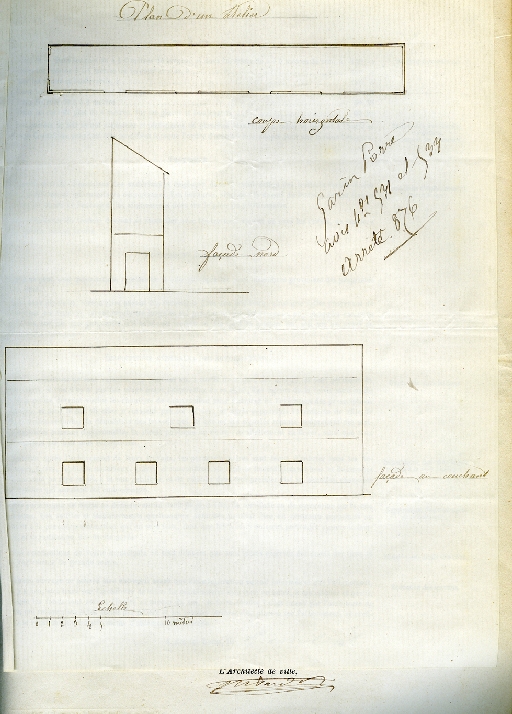 Plan d'un atelier
coupe horizontale
Garin Pierre
arrêté 876
façade nord
façade au couchant
Echelle
0 1 2 3 4 5 10 mètres
L'Architecte de ville,